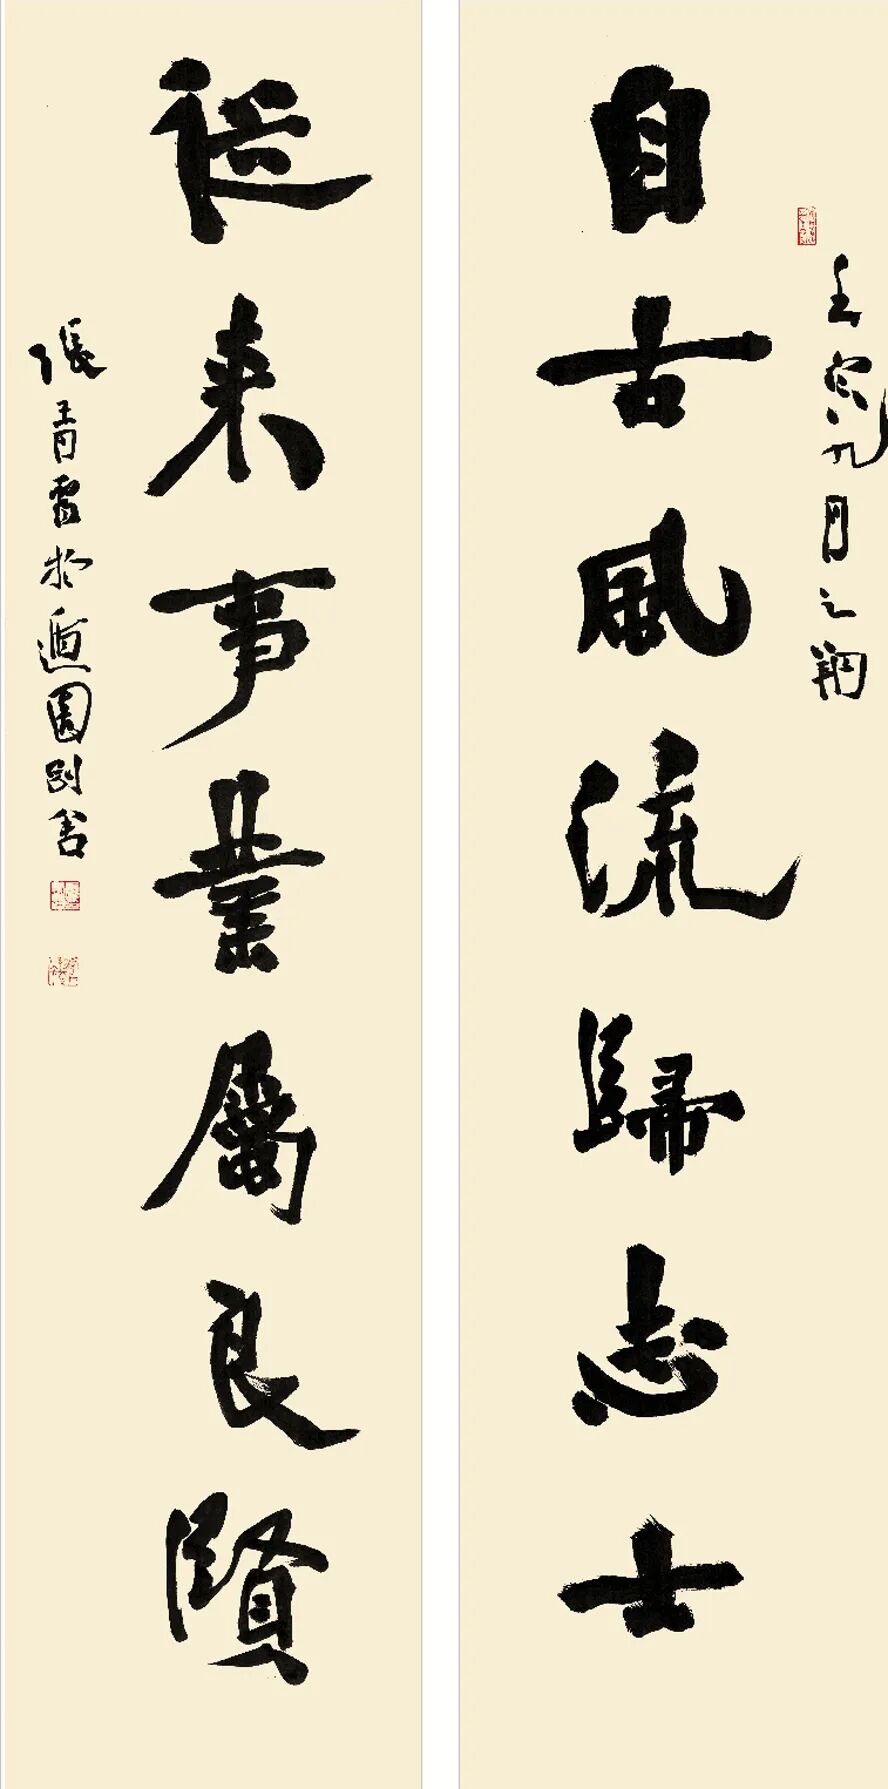 壬寅九月之
自古風流歸志士
從來事業屬良賢
張青於遁園別舍